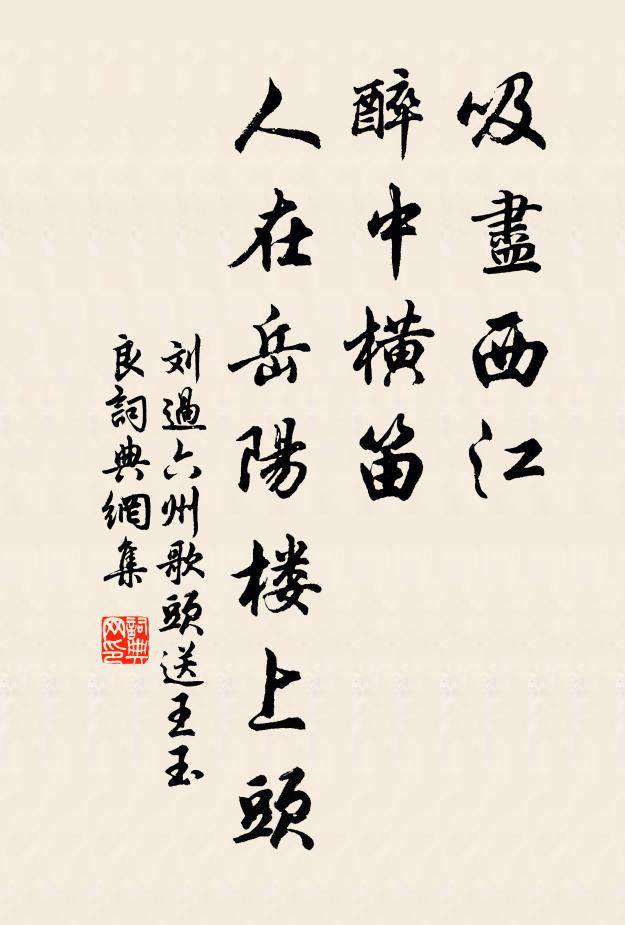 吸盡西江
醉中橫笛
人在岳陽楼上頭
刘過六州歌頭送王玉
良詞典網集
詞典網印